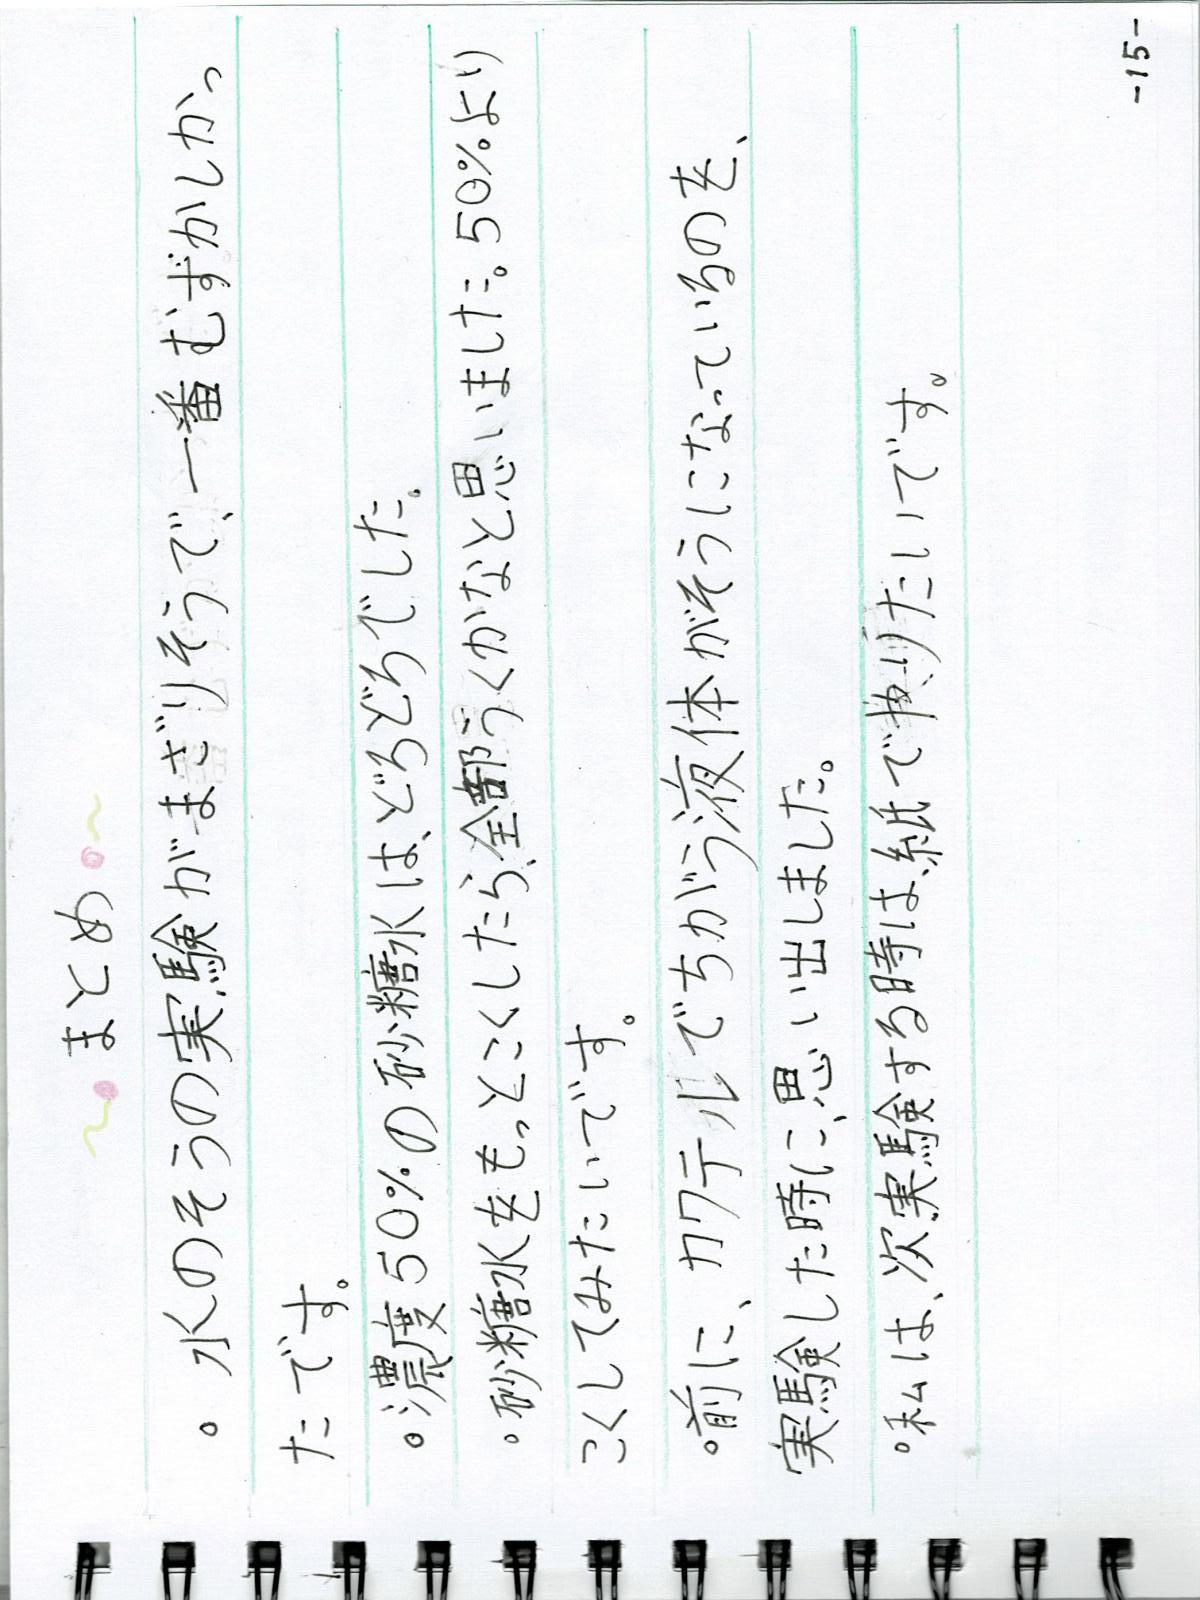 まとめ
・水のそうの実験がまざりそうで、一番むずかしかっ
たです。
・濃度50%の砂糖水は、どろどろでした。
・砂糖水をもっとこくしたら、全部うくかなと思いました。50%より
こくしてみたいです。
・前に、カクテルでちがう液体がそうになっているのを、
実験した時に、思い出しました。
・私は、次実験する時は紙でやりたいです。
-15-